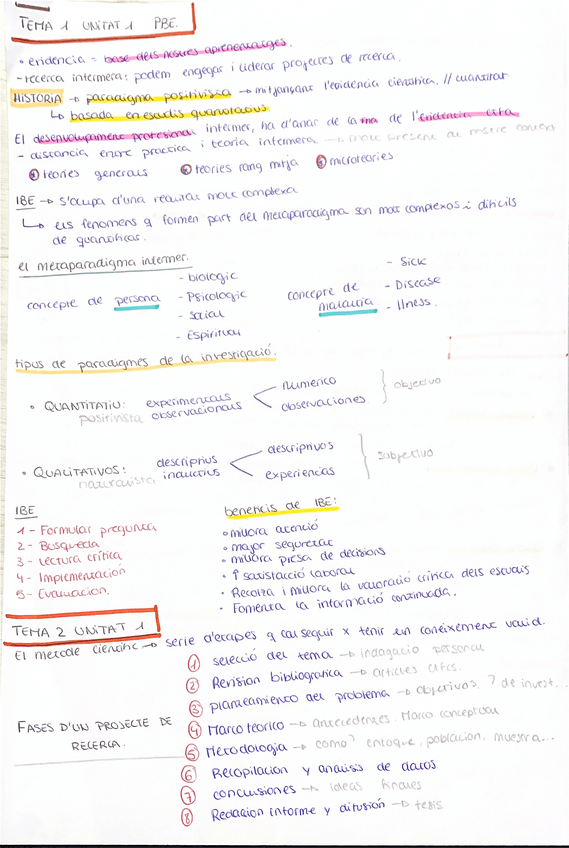 TEMA 1 UNITAT 1 PBE.
• evidencia = base dels nostres aprenentatges.
- recerca infermera: podem engegar i liderar projectes de recerca.
HISTORIA → paradigma positivista → mitjançant l'evidència científica. // cuantitat
↳ basada en estudis quantitatius
El desenvolupament professional infermer, ha d'anar de la ma de l'evidencia ctca
- distancia entre practica i teoria infermera → molt present au nostre context
① teories generals ② teories rang mitja ③ microteories
IBE → s'ocupa d'una realitat molt complexa
↳ els fenomens q formen part del metaparadigma son molt complexos i dificils
de quantificar.
el metaparadigma infermer.
concepte de persona
- biologic
- Psicologic
- social
- Espiritual
concepte de malaltia
- Sick
- Disease
- Illness.
tipus de paradigmes de la investigació.
• QUANTITATIU: experimentals
positivista observacionals
numerico
observaciones
objectivo
• QUALITATIVOS: descriptius
naturalista inductius
descriptivos
experiencias
subjectivo
IBE
1 - Formular pregunta
2 - Busqueda
3 - Lectura crítica
4 - Implementación
5 - Evaluacion.
beneficis de IBE:
• millora atenció
• major seguretat
• millora presa de decisions
• ↑ satisfacció laboral
• Recolza i millora la valoració crítica dels estudis
• Fomenta la informació continuada.
TEMA 2 UNITAT 1
El metode cientific → serie d'etapes q cal seguir x tenir un coneixement valid.
FASES D'UN PROJECTE DE
RECERCA.
① selecció del tema → indagacio personal
② Revision bibliografica → articles ctfcs.
③ planteamiento del problema → objetivos, ? de invest...
④ Marco teorico → antecedentes. Marco conceptual
⑤ Metodologia → como? enfoque, poblacion, muestra...
⑥ Recopilacion y analisis de datos
⑦ conclusiones → ideas finales
⑧ Redacion informe y difusión → tesis